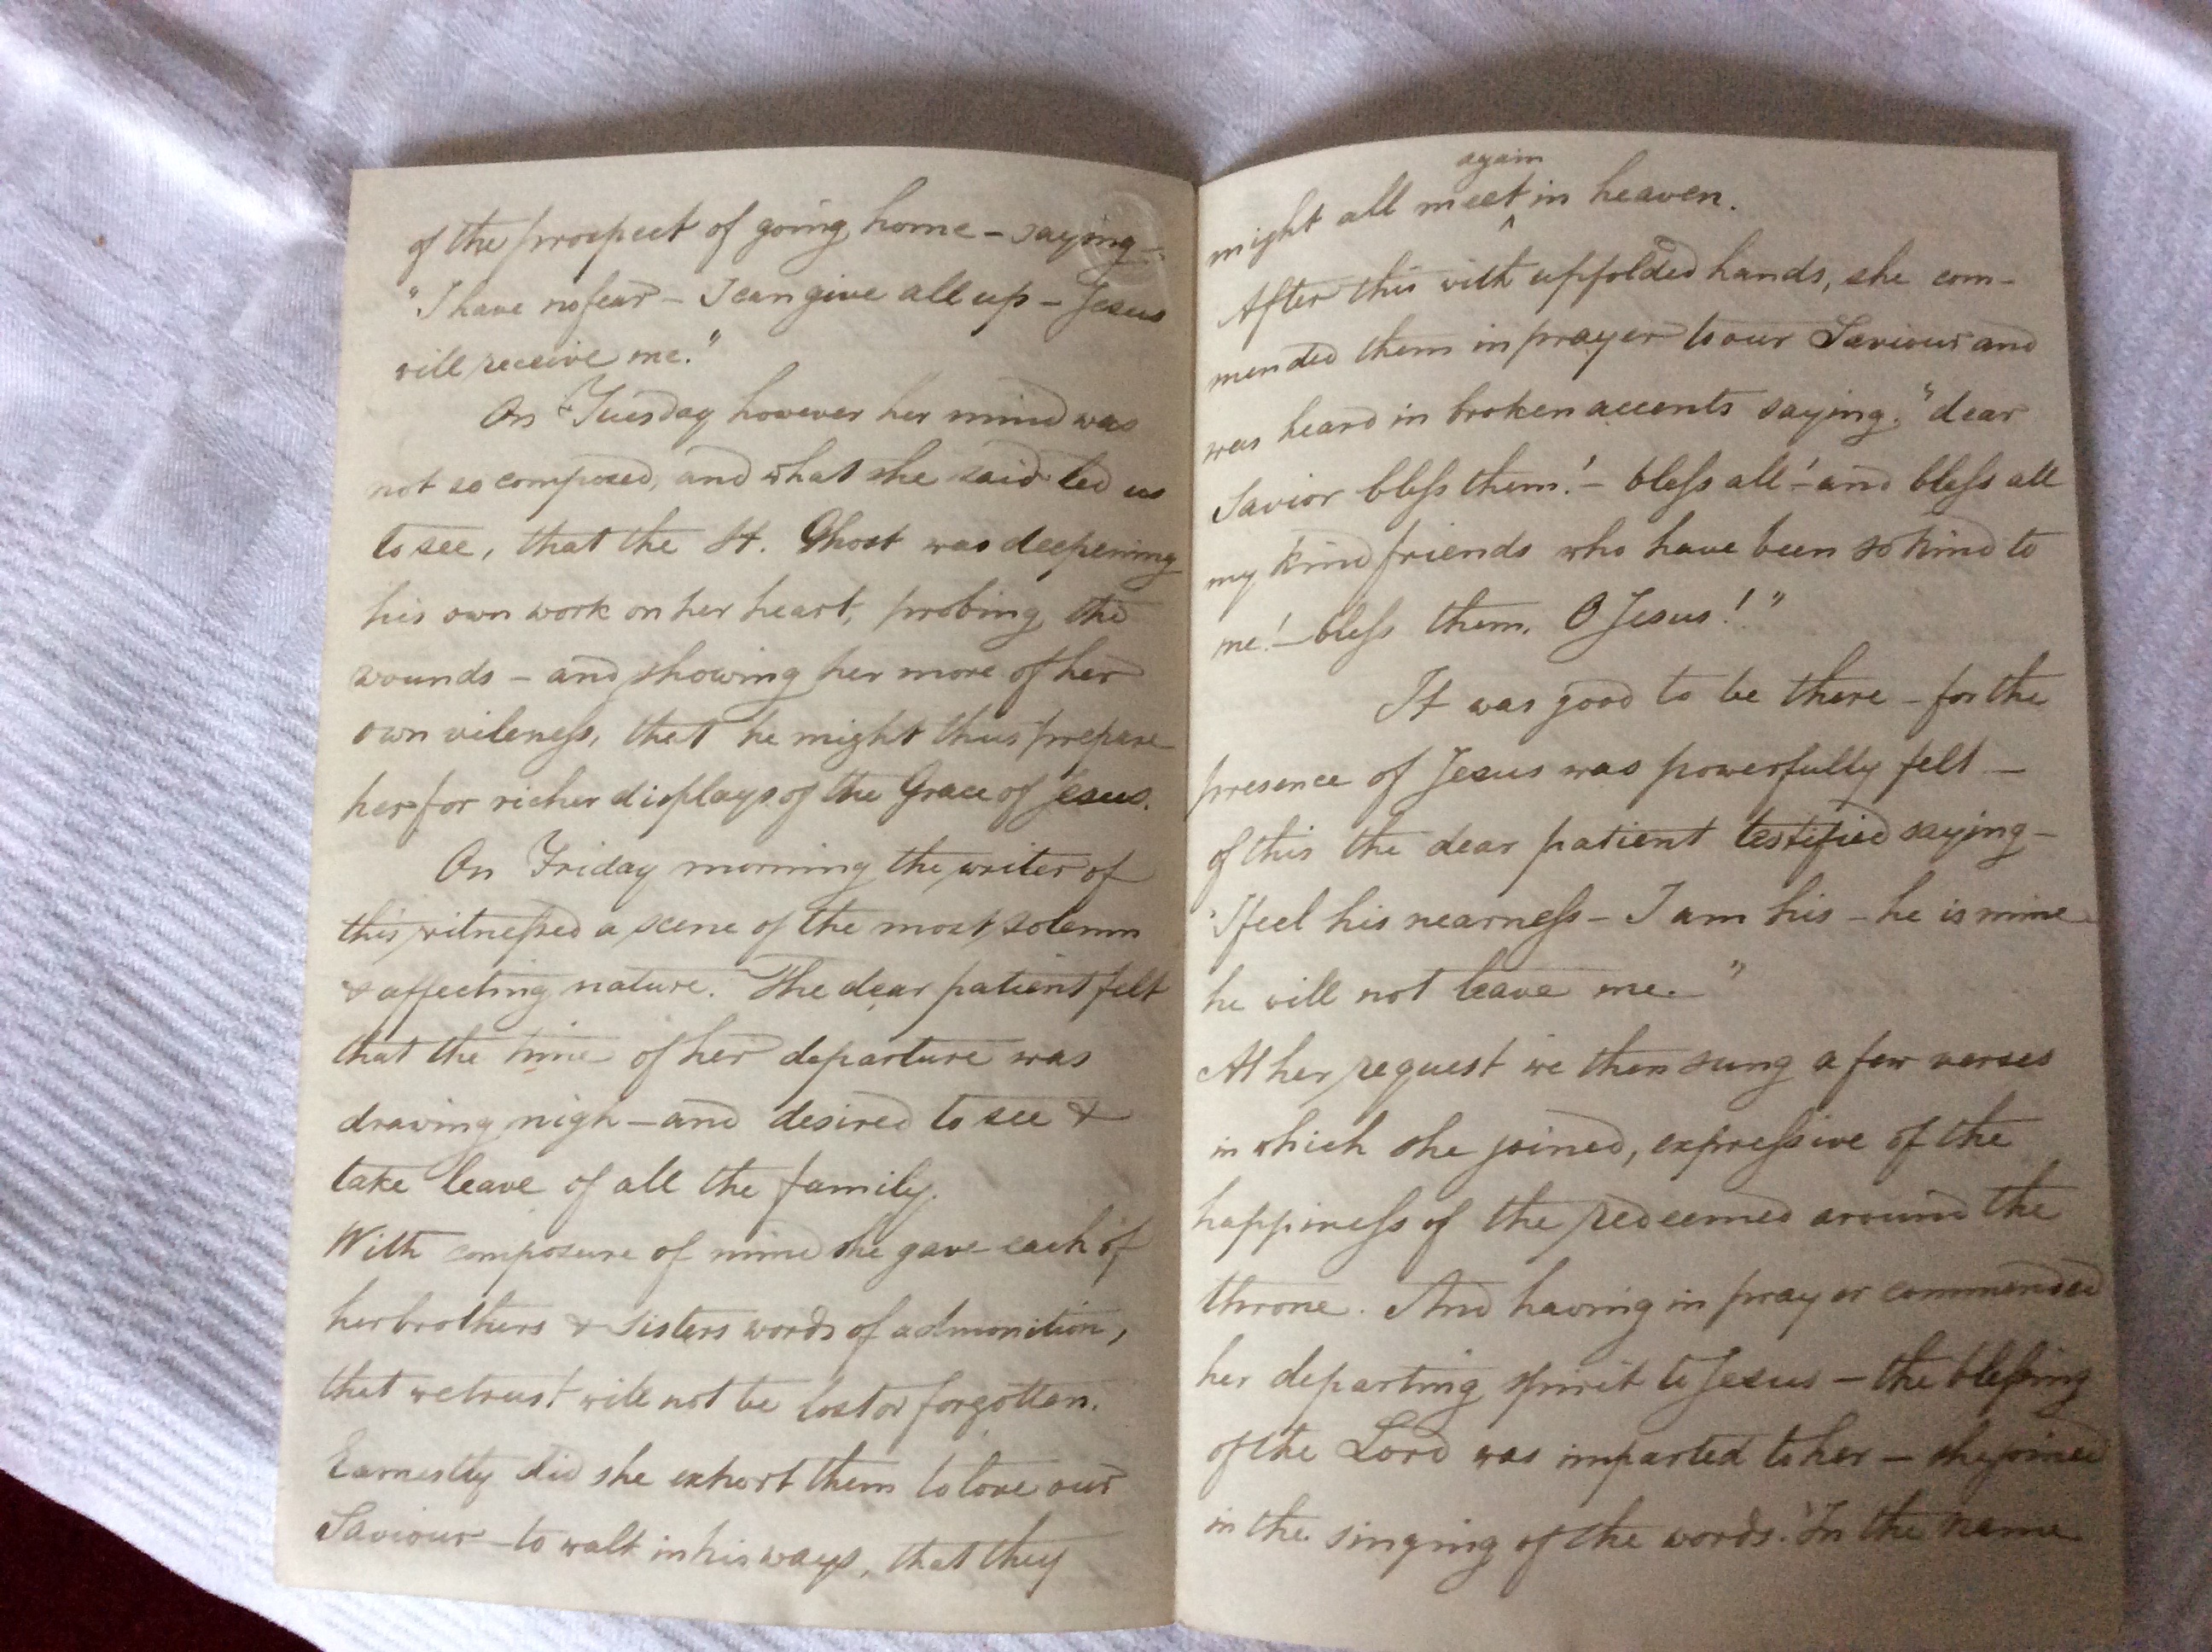 of the prospect of going home – saying –
"I have no fear – I can give all up – Jesus
will receive me."
On Tuesday however her mind was
not so composed, and what she said led us
to see, that the H. Ghost was deepening
his own work on her heart, probing the
wounds – and showing her more of her
own vileneſs, that he might thus prepare
her for richer displays of the Grace of Jesus.
On Friday morning the writer of
this witneſsed a scene of the most solemn
& affecting nature. The dear patient felt
that the time of her departure was
drawing nigh – and desired to see &
take leave of all the family.
With composure of mind she gave each of
her brothers & sisters words of admonition,
that we trust will not be lost or forgotten.
Earnestly did she exhort them to love our
Saviour – to walk in his ways, that they
again
might all meet ^ in heaven.
After this with upfolded hands, she com-
mended them in prayer to our Saviour and
was heard in broken accents saying, "dear
Savior bleſs them! – bleſs all! – and bleſs all
my kind friends who have been so kind to
me! – bleſs them, O Jesus!"
It was good to be there – for the
presence of Jesus was powerfully felt –
of this the dear patient testified saying –
"I feel his nearneſs – I am his – he is mine
he will not leave me. –"
At her request we then sung a few verses
in which she joined, expreſsive of the
happineſs of the redeemed around the
throne. And having in prayer commended
her departing spirit to Jesus – the bleſsing
of the Lord was imparted to her – she joined
in the singing of the words. "In the name